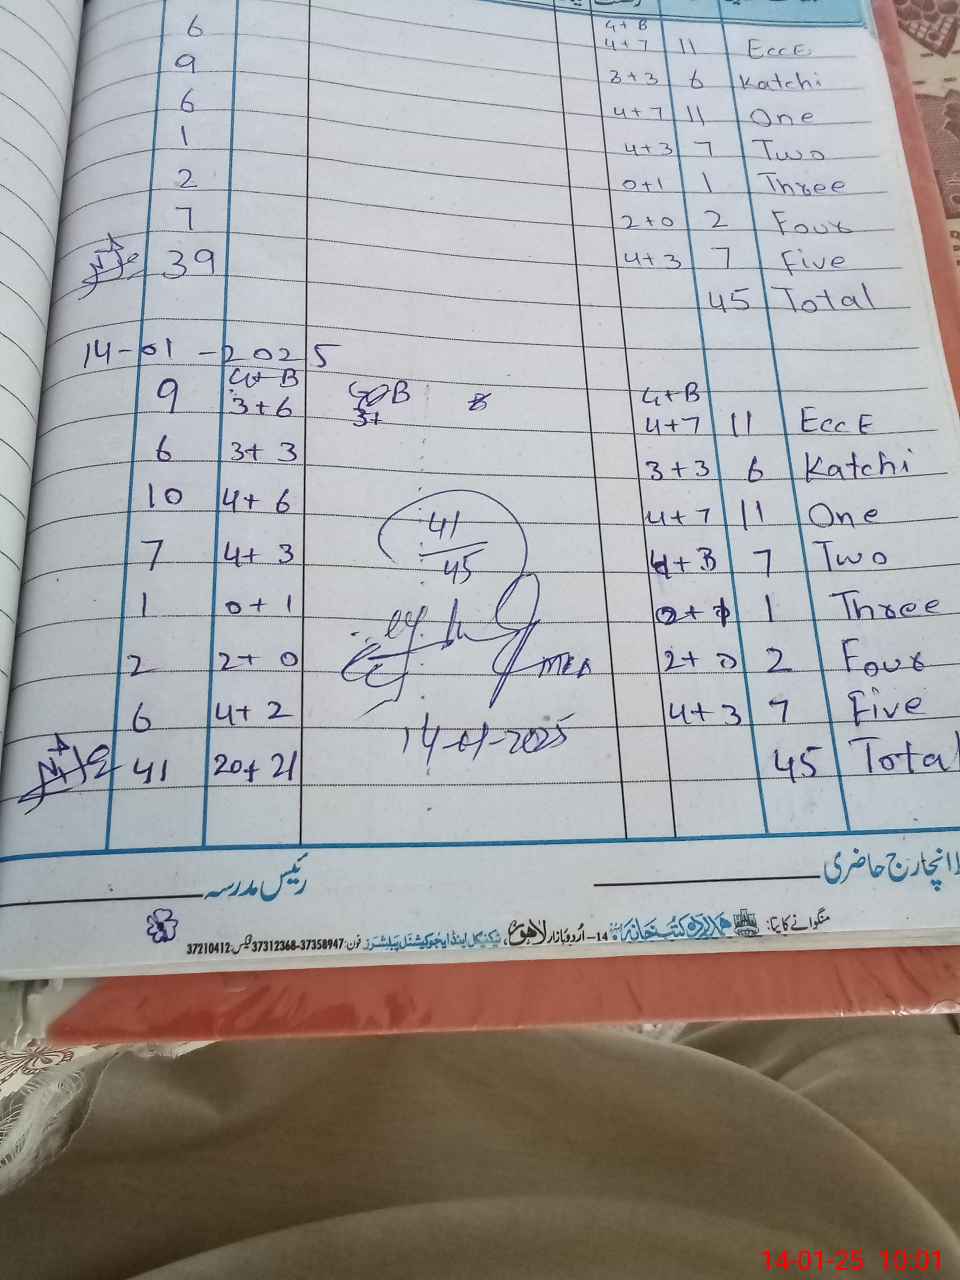 6 G+B
4+7 11 EccE
9 3+3 6 Katchi
6 4+7 11 One
1 4+3 7 Two
2 0+1 1 Three
7 2+0 2 Four
39 4+3 7 Five
45 Total
14-01-2025
G+B G+B
9 3+6 4+7 11 EccE
3+
6 3+3 3+3 6 Katchi
10 4+6 4+7 11 One
41
45
7 4+3 4+3 7 Two
1 0+1 0+1 1 Three
2 2+0 MEA 2+0 2 Four
6 4+2 4+3 7 Five
14-01-2025
41 20+21 45 Total
انچارج حاضری
رئیس مدرسہ
منگوانے کا پتا: ہمدرد کتب خانہ 14-اُردو بازار لاہور، ٹیکنیکل اینڈ ایجوکیشنل پبلشرز فون: 37358947-37312368 فیکس: 37210412
14-01-25 10:01